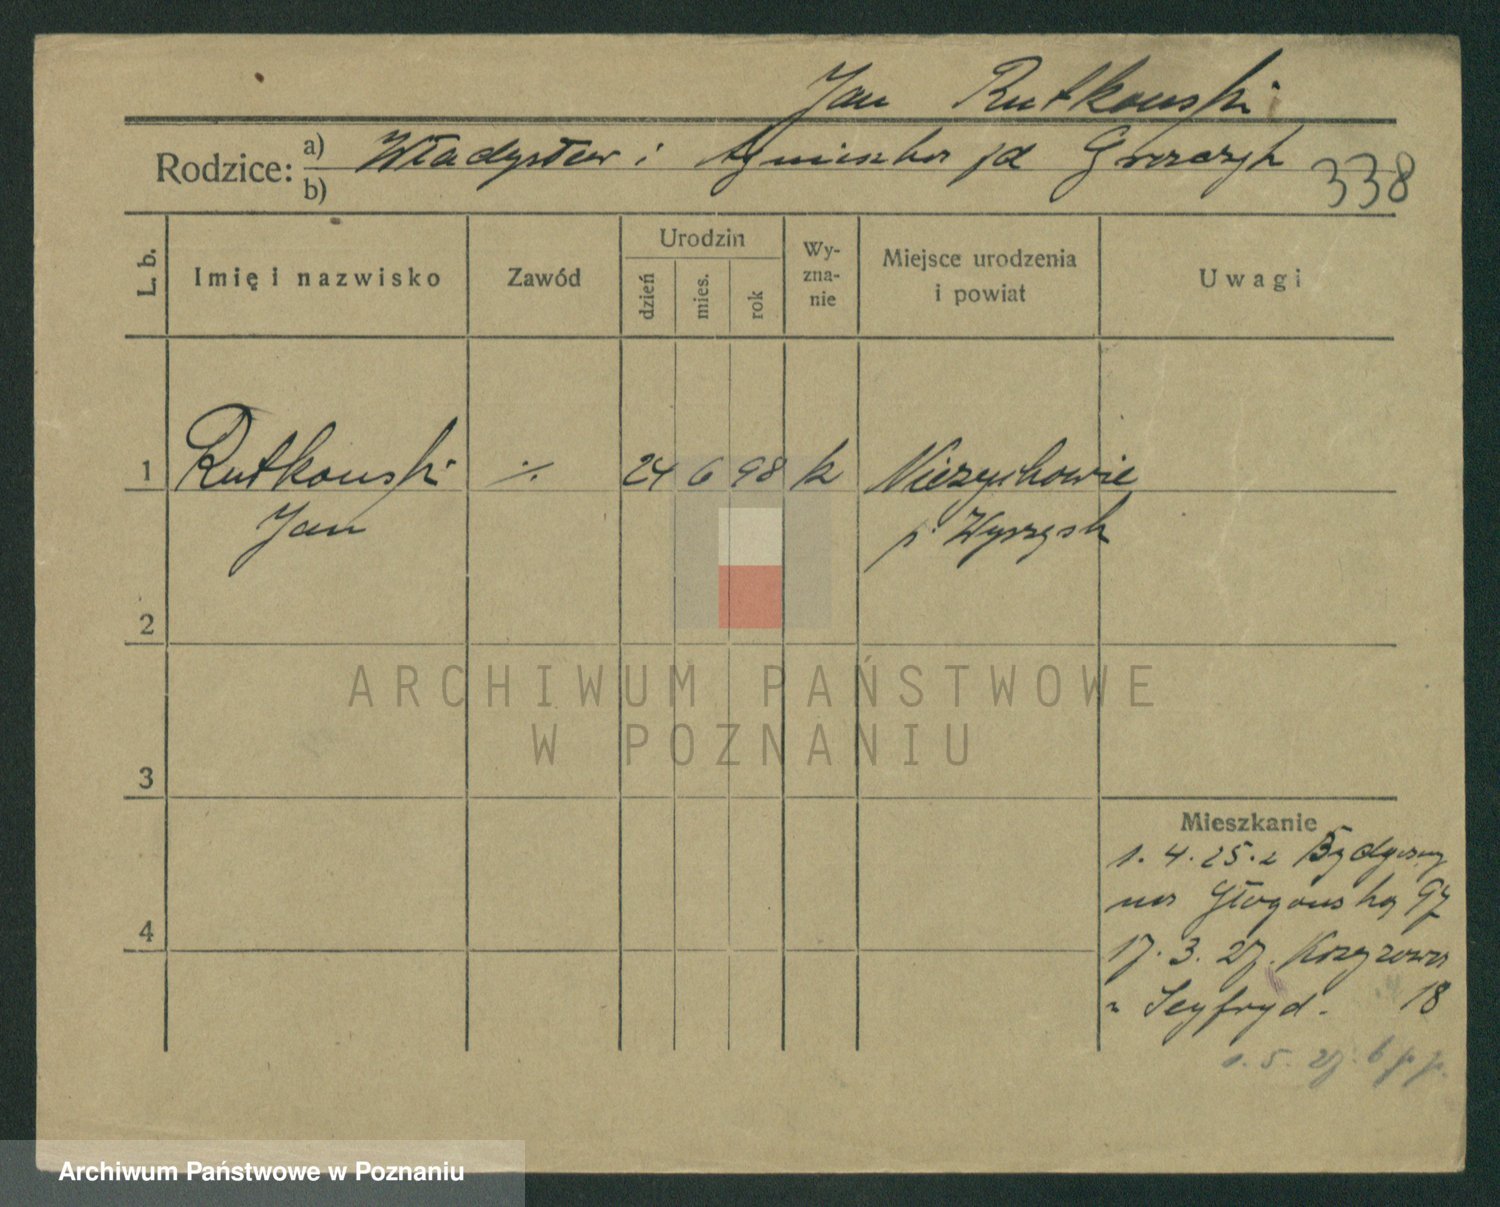 Jan Rutkowski
Rodzice: a) Władysław i Agnieszka
b)
338
L. b. Imię i nazwisko Zawód Urodzin dzień mies. rok Wyznanie Miejsce urodzenia i powiat Uwagi
1 Rutkowski ./. 24 6 98 k Niezychowie
Jan p. Wyrzysk
2
3
4
Mieszkanie
1. 4. 25. z Bydgoszcz
na Głogowską 97
17. 3. 27. Kozyrowa
u Seyfryd. 18
1. 5. 27.
ARCHIWUM PAŃSTWOWE
W POZNANIU
Archiwum Państwowe w Poznaniu